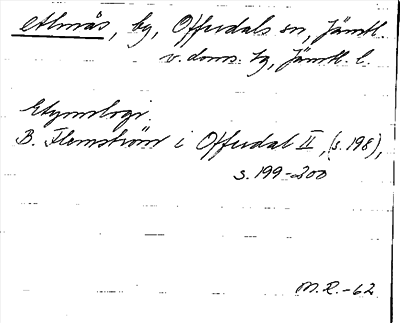 Almås, by, Offerdals sn, Jämtl.
v. doms. by, Jämtl. l.
Etymologi.
B. Flemström i Offerdal II, (s. 198),
s. 199-200
M.R.-62